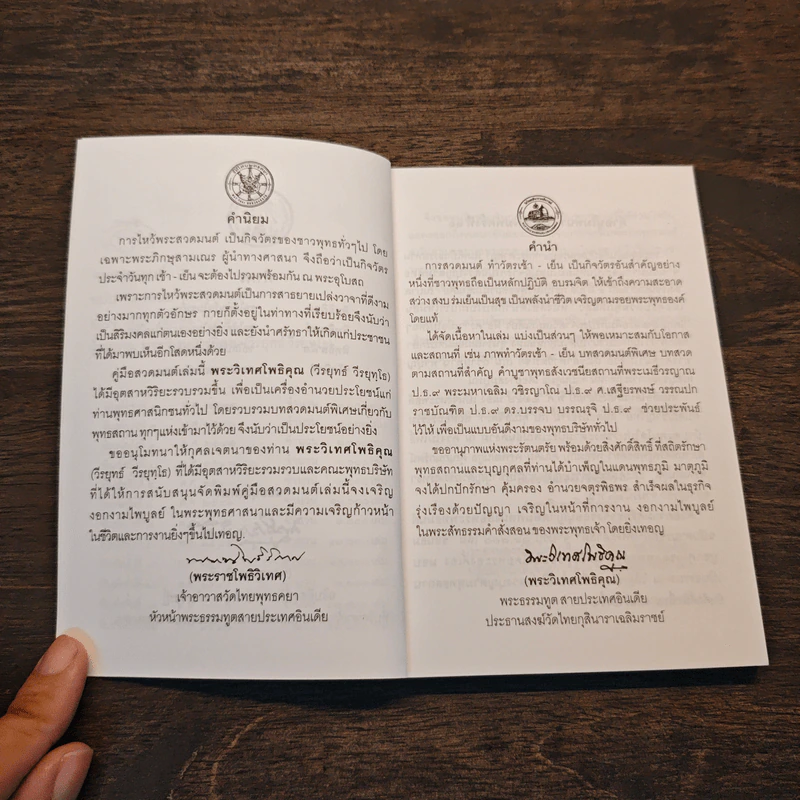 คำนิยม
การไหว้พระสวดมนต์ เป็นกิจวัตรของชาวพุทธทั่วๆไป โดย
เฉพาะพระภิกษุสามเณร ผู้นำทางศาสนา จึงถือว่าเป็นกิจวัตร
ประจำวันทุก เช้า - เย็น จะต้องไปรวมพร้อมกัน ณ พระอุโบสถ
เพราะการไหว้พระสวดมนต์เป็นการสาธยายเปล่งวาจาที่ดีงาม
อย่างมากทุกตัวอักษร กายก็ตั้งอยู่ในท่าทางที่เรียบร้อยจึงนับว่า
เป็นสิริมงคลแก่ตนเองอย่างยิ่ง และยังนำศรัทธาให้เกิดแก่ประชาชน
ที่ได้มาพบเห็นอีกโสดหนึ่งด้วย
คู่มือสวดมนต์เล่มนี้ พระวิเทศโพธิคุณ (วีรยุทธ์ วีรยุทฺโธ)
ได้มีอุตสาหวิริยะรวบรวมขึ้น เพื่อเป็นเครื่องอำนวยประโยชน์แก่
ท่านพุทธศาสนิกชนทั่วไป โดยรวบรวมบทสวดมนต์พิเศษเกี่ยวกับ
พุทธสถาน ทุกๆแห่งเข้ามาไว้ด้วย จึงนับว่าเป็นประโยชน์อย่างยิ่ง
ขออนุโมทนาให้กุศลเจตนาของท่าน พระวิเทศโพธิคุณ
(วีรยุทธ์ วีรยุทฺโธ) ที่ได้มีอุตสาหวิริยะรวมรวบและคณะพุทธบริษัท
ที่ได้ให้การสนับสนุนจัดพิมพ์คู่มือสวดมนต์เล่มนี้จงเจริญ
งอกงามไพบูลย์ ในพระพุทธศาสนาและมีความเจริญก้าวหน้า
ในชีวิตและการงานยิ่งๆขึ้นไปเทอญ.
(พระราชโพธิวิเทศ)
เจ้าอาวาสวัดไทยพุทธคยา
หัวหน้าพระธรรมทูตสายประเทศอินเดีย
คำนำ
การสวดมนต์ ทำวัตรเช้า - เย็น เป็นกิจวัตรอันสำคัญอย่าง
หนึ่งที่ชาวพุทธถือเป็นหลักปฏิบัติ อบรมจิต ให้เข้าถึงความสะอาด
สว่าง สงบ ร่มเย็นเป็นสุข เป็นพลังนำชีวิต เจริญตามรอยพระพุทธองค์
โดยแท้
ได้จัดเนื้อหาในเล่ม แบ่งเป็นส่วนๆ ให้พอเหมาะสมกับโอกาส
และสถานที่ เช่น ภาพทำวัตรเช้า - เย็น บทสวดมนต์พิเศษ บทสวด
ตามสถานที่สำคัญ คำบูชาพุทธสังเวชนียสถานที่พระเมธีวราญาณ
ป.ธ.๙ พระมหาเฉลิม วชิรญาโณ ป.ธ.๙ ศ.เสฐียรพงษ์ วรรณปก
ราชบัณฑิต ป.ธ.๙ ดร.บรรจบ บรรณรุจิ ป.ธ.๙ ช่วยประพันธ์
ไว้ให้ เพื่อเป็นแบบอันดีงามของพุทธบริษัททั่วไป
ขออานุภาพแห่งพระรัตนตรัย พร้อมด้วยสิ่งศักดิ์สิทธิ์ ที่สถิตรักษา
พุทธสถานและบุญกุศลที่ท่านได้บำเพ็ญในแดนพุทธภูมิ มาตุภูมิ
จงได้ปกปักรักษา คุ้มครอง อำนวยจตุรพิธพร สำเร็จผลในธุรกิจ
รุ่งเรืองด้วยปัญญา เจริญในหน้าที่การงาน งอกงามไพบูลย์
ในพระสัทธรรมคำสั่งสอน ของพระพุทธเจ้า โดยยิ่งเทอญ
พระวิเทศโพธิคุณ
(พระวิเทศโพธิคุณ)
พระธรรมทูต สายประเทศอินเดีย
ประธานสงฆ์วัดไทยกุสินาราเฉลิมราชย์